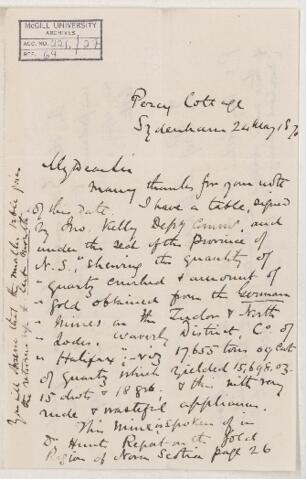 McGILL UNIVERSITY
ARCHIVES
ACC. NO. 221/27
REF. 64
Percy Cottage
Sydenham 24 May 1870
My Dear Sir
Many thanks for your note
of this date. I have a table, signed
by Jno. Kelly Depy Commr, and
under the seal of the Province of
N.S., "shewing the quantity of
"quartz crushed & amount of
"gold obtained from the German
"Mines on the Tudor & North
"Lodes. Waverly District, Co. of
"Halifax; - viz 17655 tons 09 Cwt
of Quartz which yielded 15,698.03.
15 dwt & 18 grs, & this with very
rude & wasteful appliances.
This Mine is spoken of in
Dr Hunt Report on the Gold
Region of Nova Scotia page 26
You will observe that the small table gives
the returns up to last month